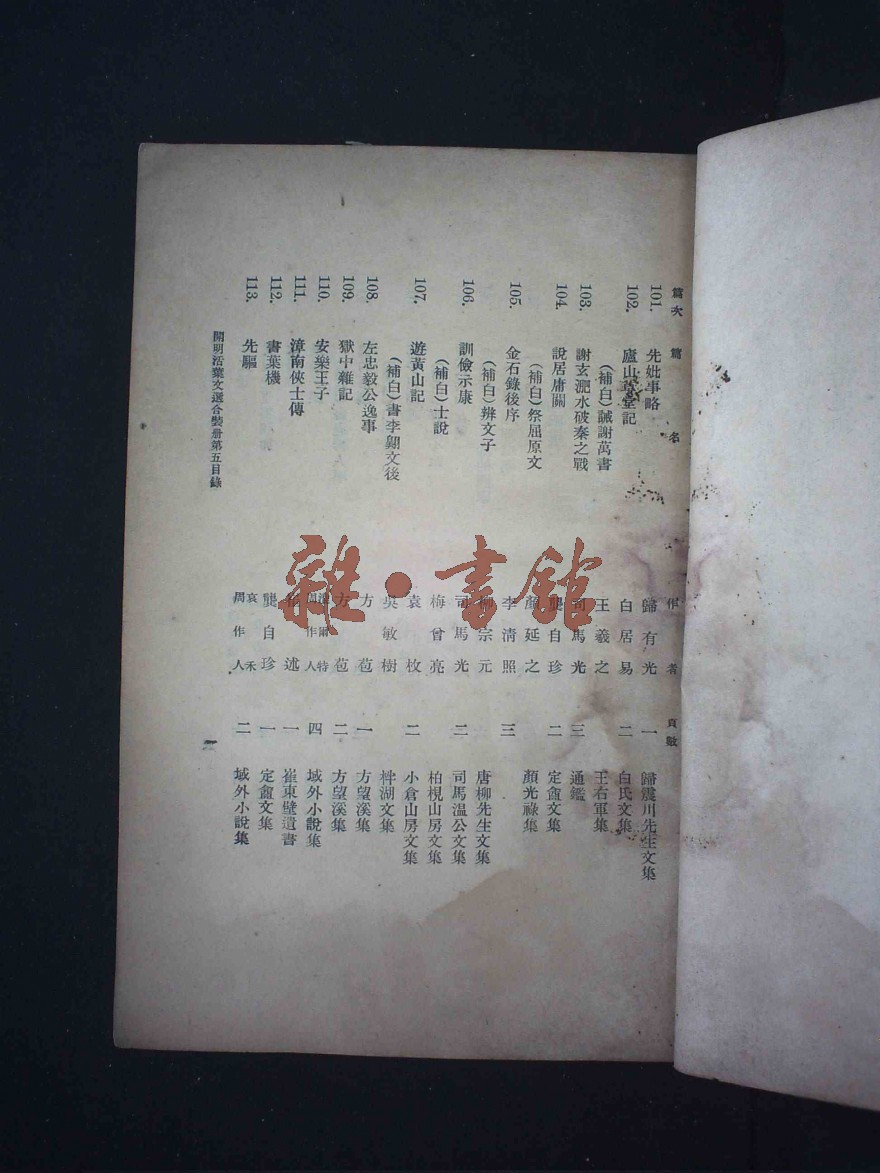 篇次 篇名 作者 頁數
101. 先妣事略 歸有光 一 歸震川先生文集
102. 廬山草堂記 白居易 二 白氏文集
（補白）誡謝萬書 王羲之 王右軍集
103. 謝玄淝水破秦之戰 司馬光 三 通鑑
104. 說居庸關 龔自珍 二 定盦文集
（補白）祭屈原文 顏延之 顏光祿集
105. 金石錄後序 李清照 三
（補白）辨文子 柳宗元 唐柳先生文集
106. 訓儉示康 司馬光 二 司馬溫公文集
（補白）士說 梅曾亮 柏梘山房文集
107. 遊黃山記 袁枚 二 小倉山房文集
（補白）書李翺文後 吳敏樹 柈湖文集
108. 左忠毅公逸事 方苞 一 方望溪集
109. 獄中雜記 方苞 二 方望溪集
110. 安樂王子 淮爾特 周作人 四 域外小說集
111. 漳南俠士傳 崔述 一 崔東壁遺書
112. 書葉機 龔自珍 一 定盦文集
113. 先驅 哀禾 周作人 二 域外小說集
開明活葉文選合裝册第五目錄
二
雜·書館